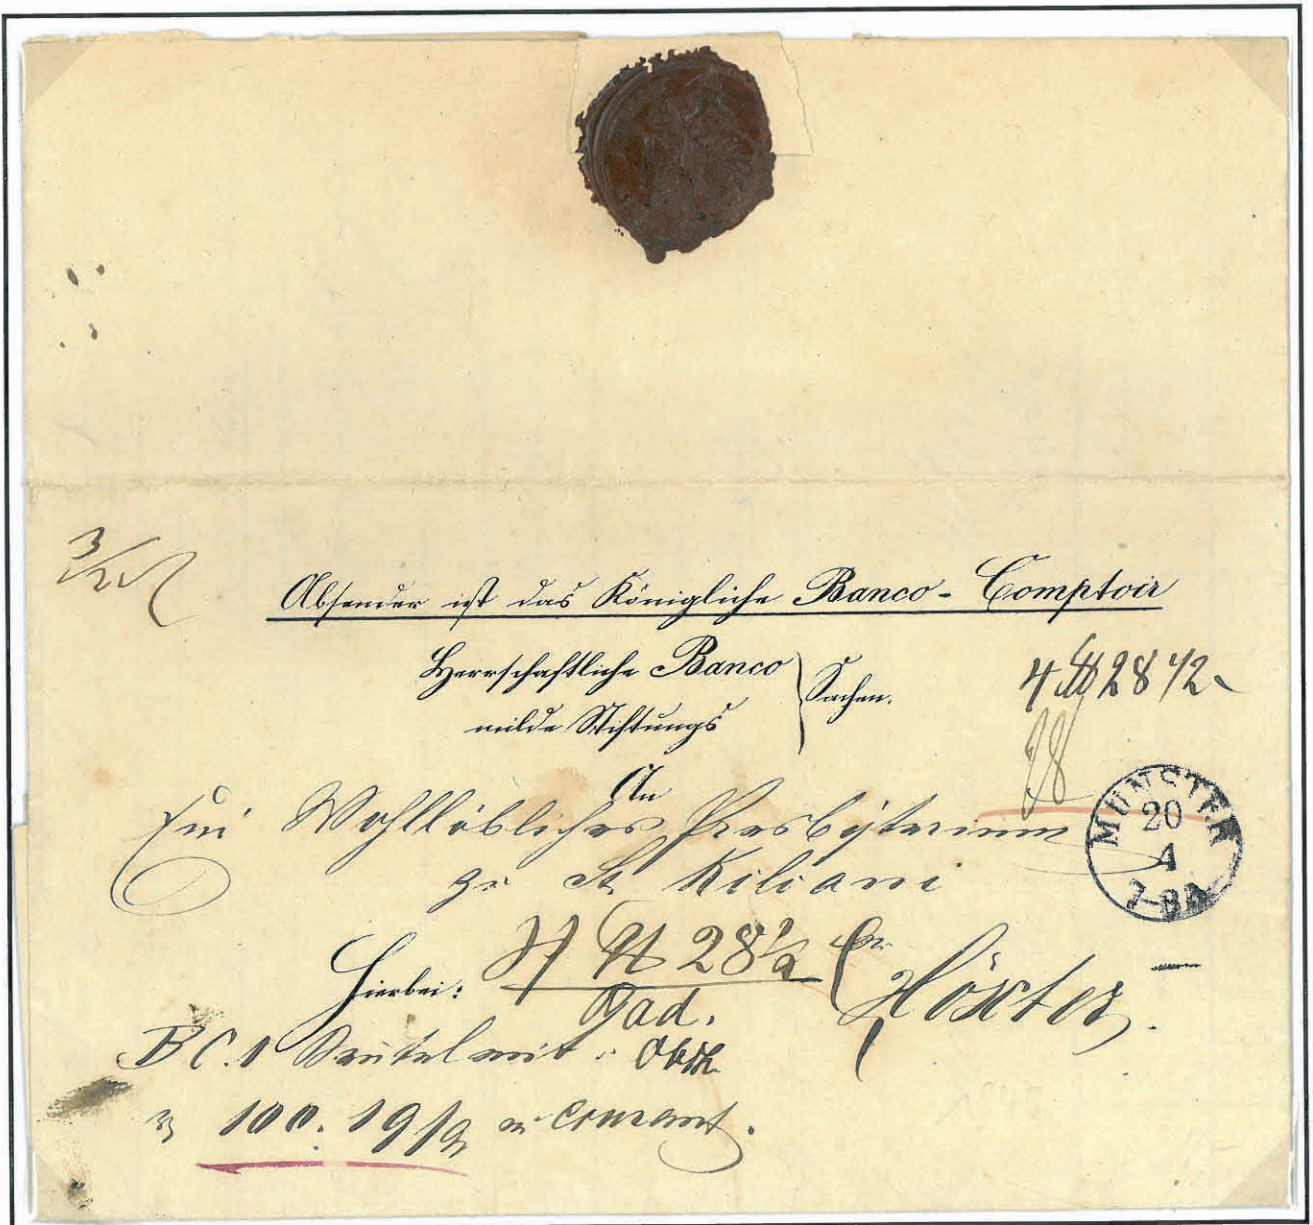 Absender ist das Königliche Banco-Comptoir
Herrschaftliche Banco
milde Stiftungs
Sachen.
4 28 1/2
28
An
Ein Wohllöbliches Presbyterium
zu St. Kiliani
MÜNSTER
20
4
Hierbei: 28 1/2
in Höxter.
Pad.
B C. 1 Beutel mit
100. 19 courant.